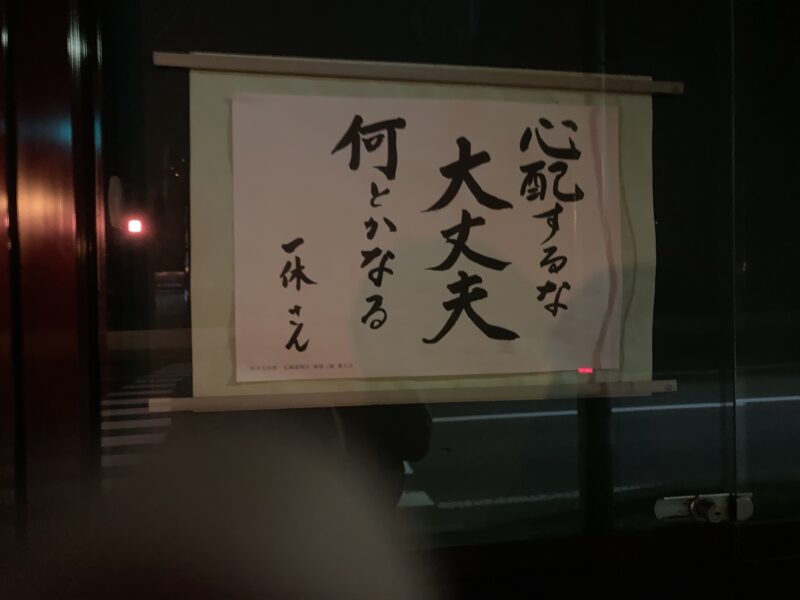 心配するな
大丈夫
何とかなる
一休さん